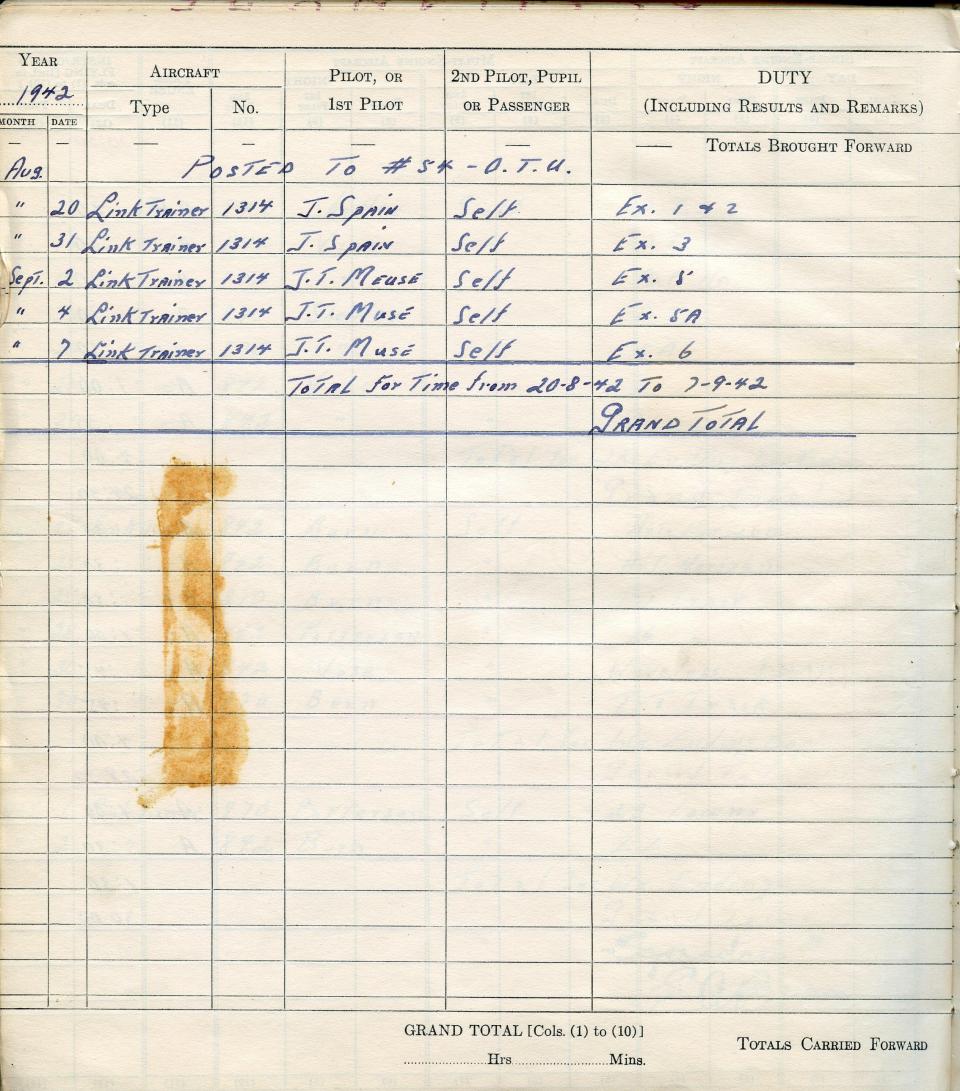 YEAR AIRCRAFT PILOT, OR 2ND PILOT, PUPIL DUTY
1942 Type No. 1ST PILOT OR PASSENGER (INCLUDING RESULTS AND REMARKS)
MONTH DATE
— — — — — — —— TOTALS BROUGHT FORWARD
Aug. POSTED TO # 54 - O.T.U.
" 20 Link Trainer 1314 J. SPAIN Self Ex. 1 & 2
" 31 Link Trainer 1314 J. SPAIN Self Ex. 3
Sept. 2 Link Trainer 1314 J.T. MEUSE Self Ex. 5
" 4 Link Trainer 1314 J.T. MUSE Self Ex. 5A
" 7 Link Trainer 1314 J.T. MUSE Self Ex. 6
TOTAL for Time from 20-8-42 To 7-9-42
GRAND TOTAL
GRAND TOTAL [Cols. (1) to (10)]
TOTALS CARRIED FORWARD
Hrs Mins.